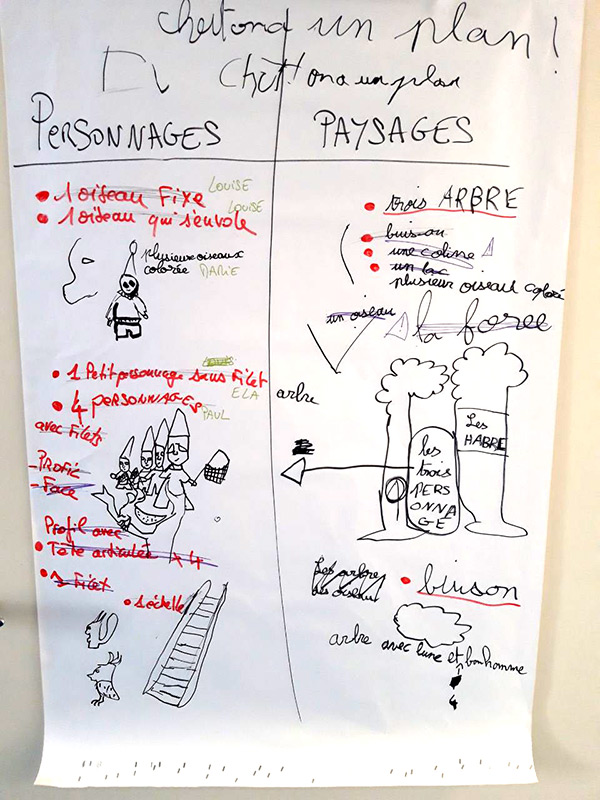 chutt on a un plan !
Chut! on a un plan
PERSONNAGES
• 1 oiseau Fixe LOUISE
• 1 oiseau qui s'envole LOUISE
plusieur oiseaux
colorée MARIE
• 1 Petit personnage sans Filet
ELA
• 4 PERSONNAGES PAUL
avec Filets
- PROFIL
- Face
Profil avec
• Tête articulée x 4
• 1 Filet
• 1 échelle
PAYSAGES
• trois ARBRE
• buisson
• une coline
• un lac
plusieur oiseau coloré
un oiseau
la foree
arbre
Les
HABRE
les
trois
PERS
ONNA
GE
Les arbre
des oiseau
• buison
arbre avec lune et bonhomme